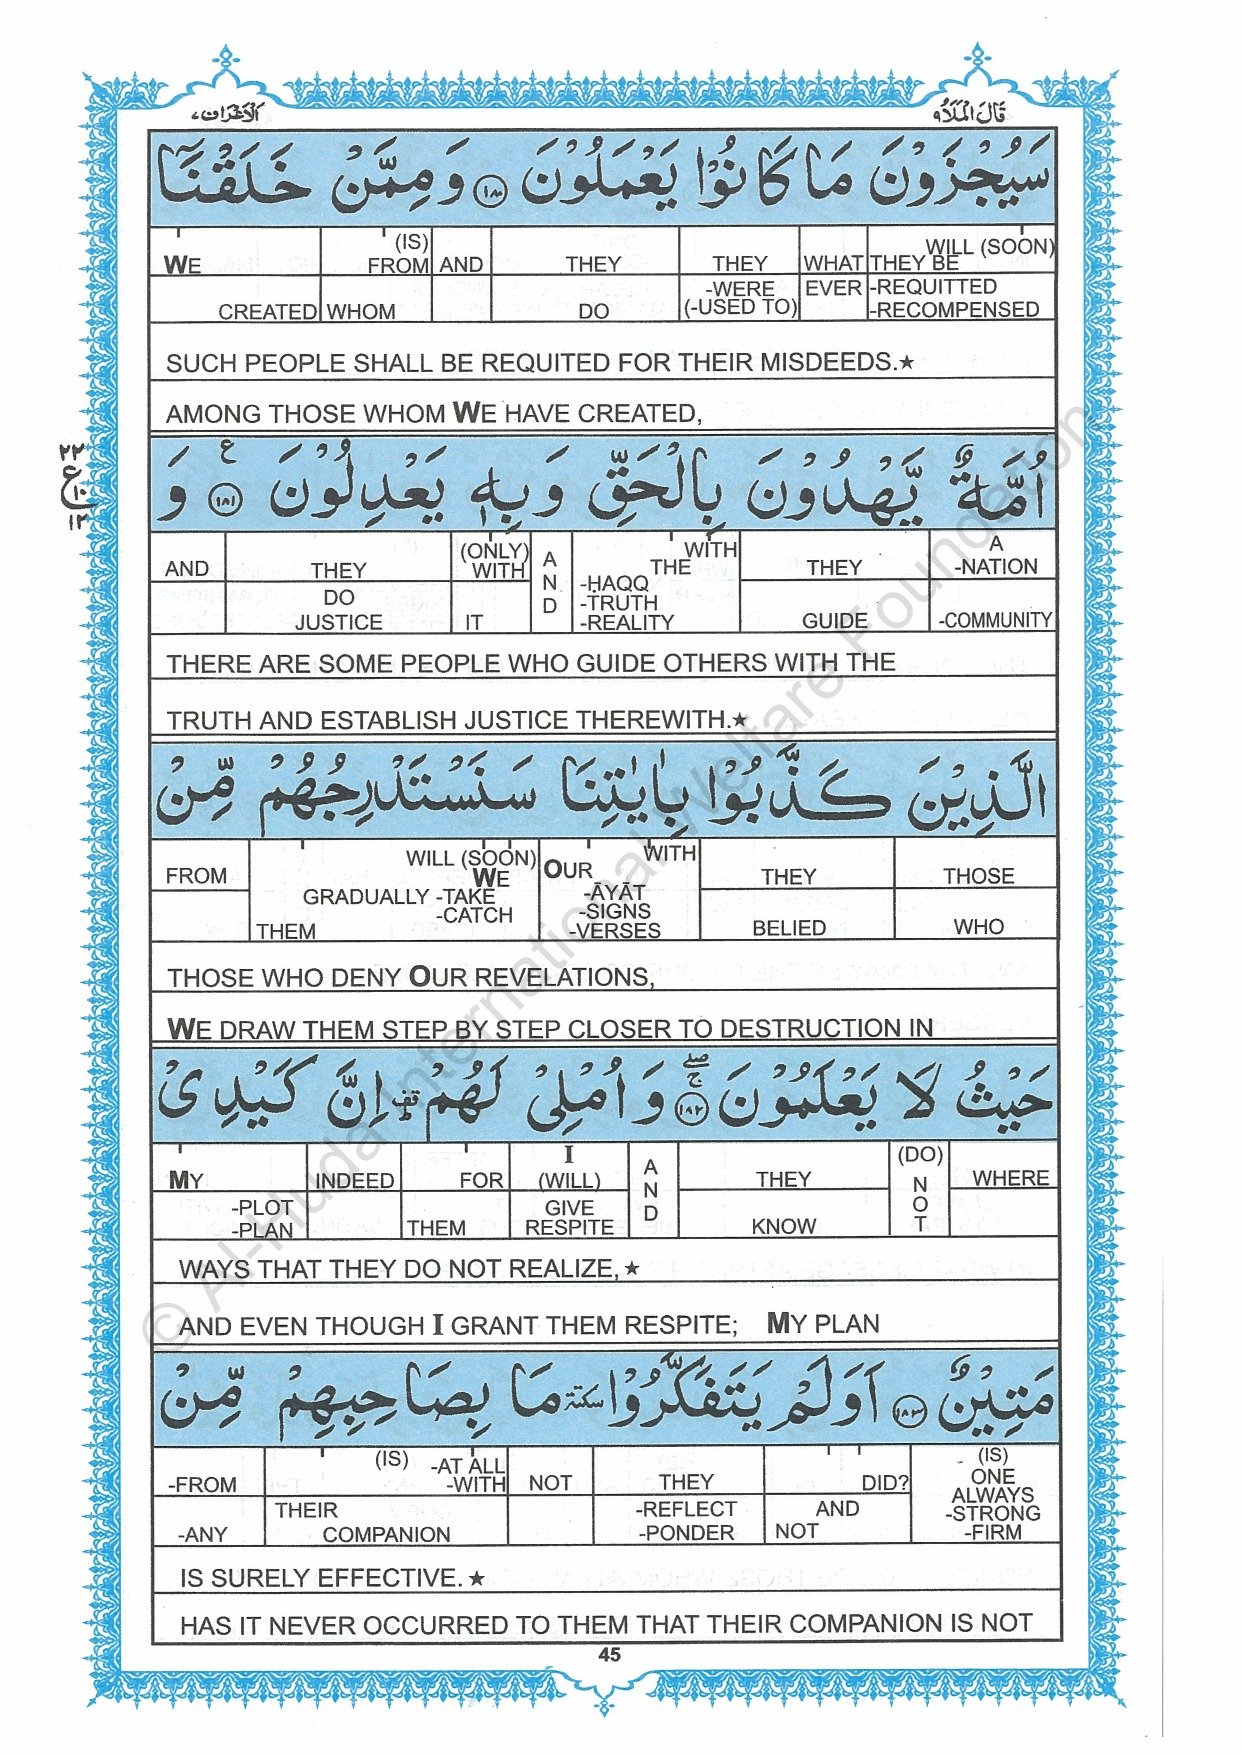 قَالَ الْمَلَاُ ٩
الْاَعْرَاف ٧
سَيُجْزَوْنَ مَا كَانُوْا يَعْمَلُوْنَ ١٨٠ وَمِمَّنْ خَلَقْنَاۤ
WILL (SOON) THEY BE -REQUITTED -RECOMPENSED | WHAT EVER | THEY -WERE (-USED TO) | THEY DO | AND | (IS) FROM WHOM | WE CREATED
SUCH PEOPLE SHALL BE REQUITED FOR THEIR MISDEEDS.★
AMONG THOSE WHOM WE HAVE CREATED,
٢٢ ع ١٠ ١٢
اُمَّةٌ يَّهْدُوْنَ بِالْحَقِّ وَبِهٖ يَعْدِلُوْنَ ١٨١ ع وَ
A -NATION -COMMUNITY | THEY GUIDE | WITH THE -ḤAQQ -TRUTH -REALITY | AND | (ONLY) WITH IT | THEY DO JUSTICE | AND
THERE ARE SOME PEOPLE WHO GUIDE OTHERS WITH THE
TRUTH AND ESTABLISH JUSTICE THEREWITH.★
الَّذِيْنَ كَذَّبُوْا بِاٰيٰتِنَا سَنَسْتَدْرِجُهُمْ مِّنْ
THOSE WHO | THEY BELIED | WITH OUR -ĀYĀT -SIGNS -VERSES | WILL (SOON) WE GRADUALLY -TAKE -CATCH THEM | FROM
THOSE WHO DENY OUR REVELATIONS,
WE DRAW THEM STEP BY STEP CLOSER TO DESTRUCTION IN
حَيْثُ لَا يَعْلَمُوْنَ ١٨٢ صلے ج وَاُمْلِيْ لَهُمْ قف ط اِنَّ كَيْدِيْ
WHERE | (DO) NOT | THEY KNOW | AND | I (WILL) GIVE RESPITE | FOR THEM | INDEED | MY -PLOT -PLAN
WAYS THAT THEY DO NOT REALIZE,★
AND EVEN THOUGH I GRANT THEM RESPITE; MY PLAN
مَتِيْنٌ ١٨٣ اَوَلَمْ يَتَفَكَّرُوْا سكتة مَا بِصَاحِبِهِمْ مِّنْ
(IS) ONE ALWAYS -STRONG -FIRM | DID? AND NOT | THEY -REFLECT -PONDER | NOT | (IS) -AT ALL -WITH THEIR COMPANION | -FROM -ANY
IS SURELY EFFECTIVE.★
HAS IT NEVER OCCURRED TO THEM THAT THEIR COMPANION IS NOT
45
© Al-Huda International Welfare Foundation